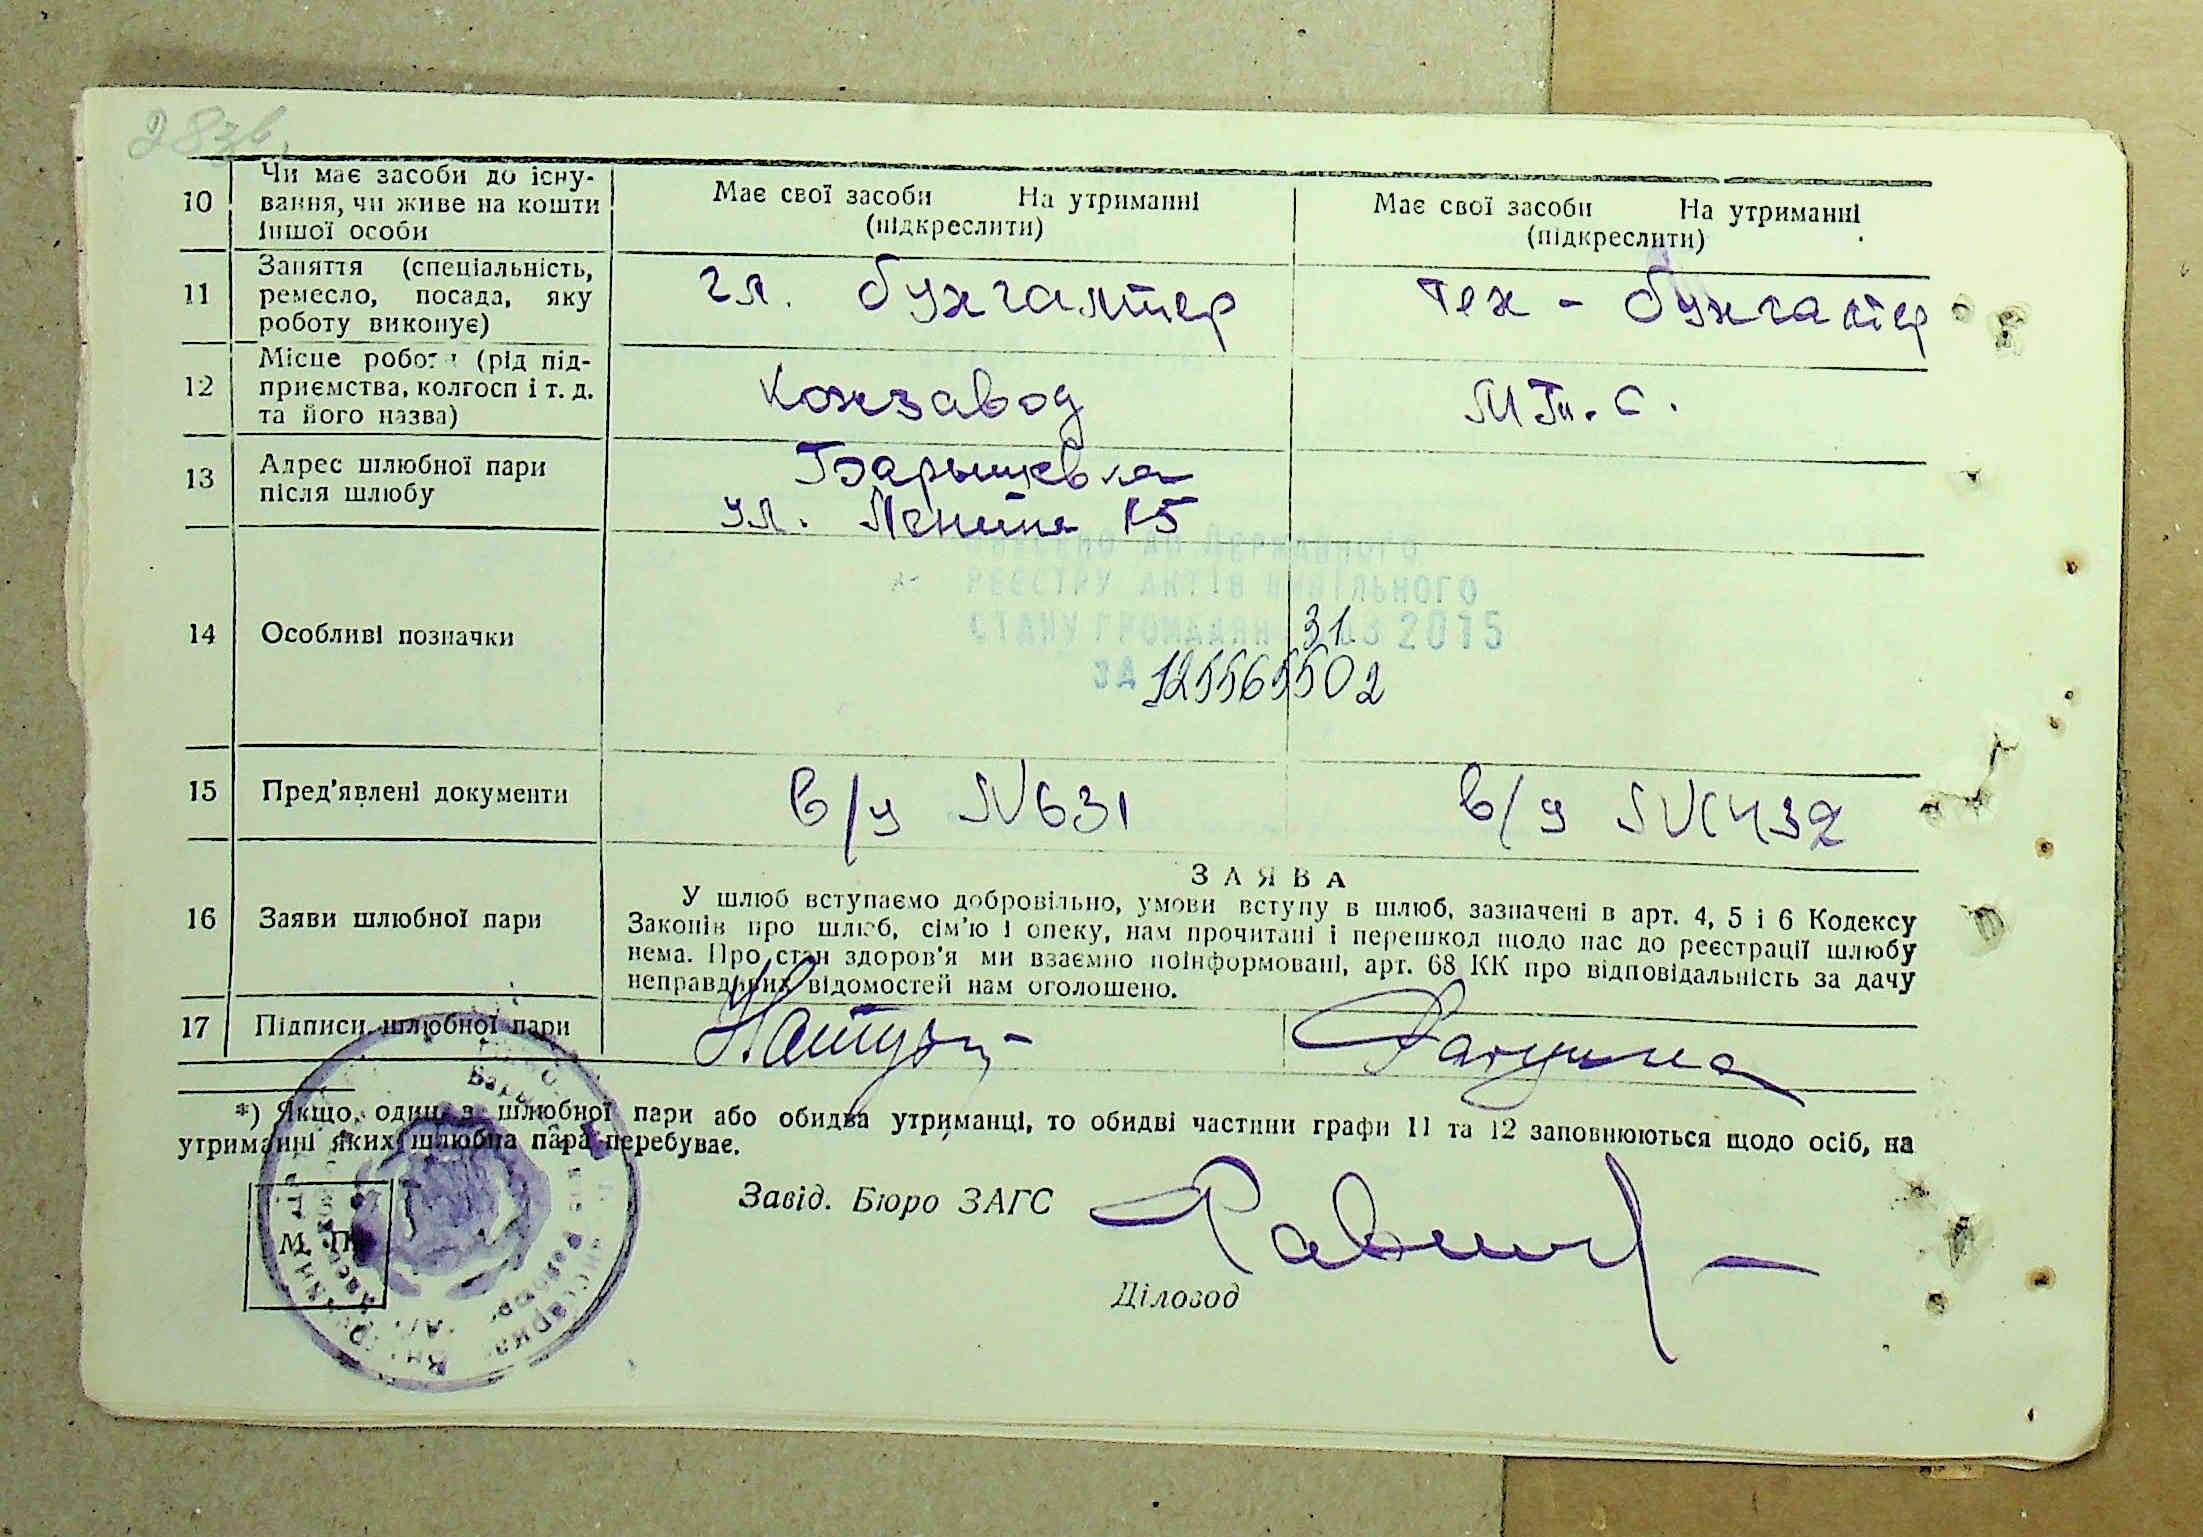 28зв.
10 Чи має засоби до існу-
вання, чи живе на кошти
іншої особи
Має свої засоби На утриманні
(підкреслити)
Має свої засоби На утриманні
(підкреслити)
11 Заняття (спеціальність,
ремесло, посада, яку
роботу виконує)
гл. бухгалтер
тех - бухгалтер
12 Місце роботи (рід під-
приємства, колгосп і т. д.
та його назва)
Кожзавод
МТ.С.
13 Адрес шлюбної пари
після шлюбу
Барышевка
ул. Ленина 15
14 Особливі позначки
ВНЕСЕНО ДО ДЕРЖАВНОГО
РЕЄСТРУ АКТІВ ЦИВІЛЬНОГО
СТАНУ ГРОМАДЯН 31. 03 2015
ЗА
15 Пред'явлені документи
в/у N 631
в/у
16 Заяви шлюбної пари
ЗАЯВА
У шлюб вступаємо добровільно, умови вступу в шлюб, зазначені в арт. 4, 5 і 6 Кодексу
Законів про шлюб, сім'ю і опеку, нам прочитані і перешкол щодо нас до реєстрації шлюбу
нема. Про стан здоров'я ми взаємно поінформовані, арт. 68 КК про відповідальність за дачу
неправдивих відомостей нам оголошено.
17 Підписи шлюбної пари
*) Якщо один з шлюбної пари або обидва утриманці, то обидві частини графи 11 та 12 заповнюються щодо осіб, на
утриманні яких шлюбна пара перебуває.
Завід. Бюро ЗАГС
М. П.
Діловод